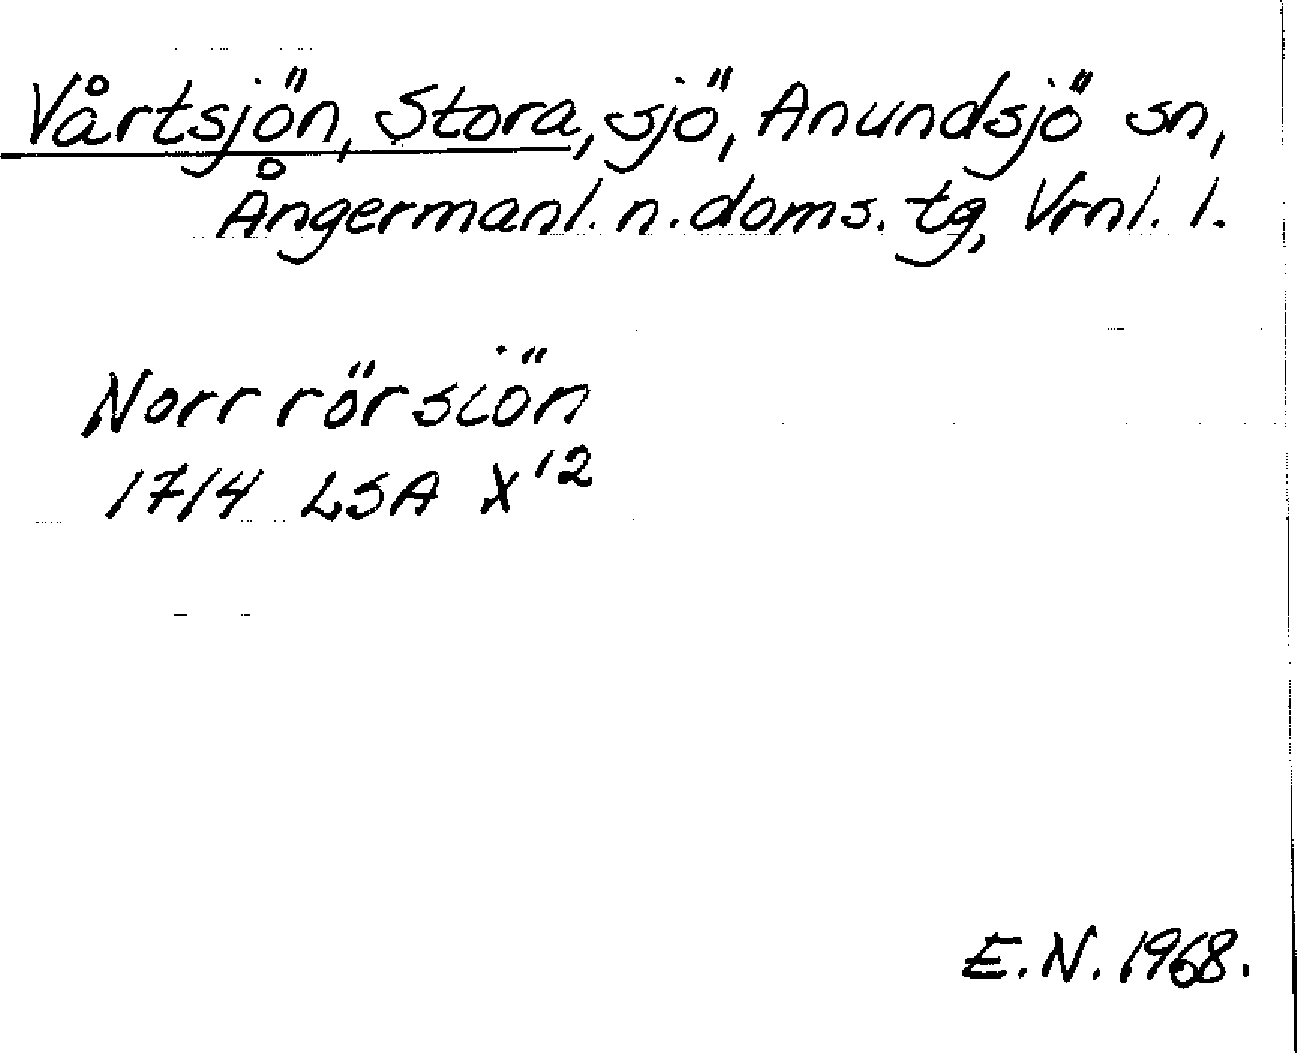 Vårtsjön, Stora, sjö, Anundsjö sn,
Ångermanl. n. doms. tg, Vrnl. l.
Norr rörsiön
1714 LSA X¹²
E.N. 1968.